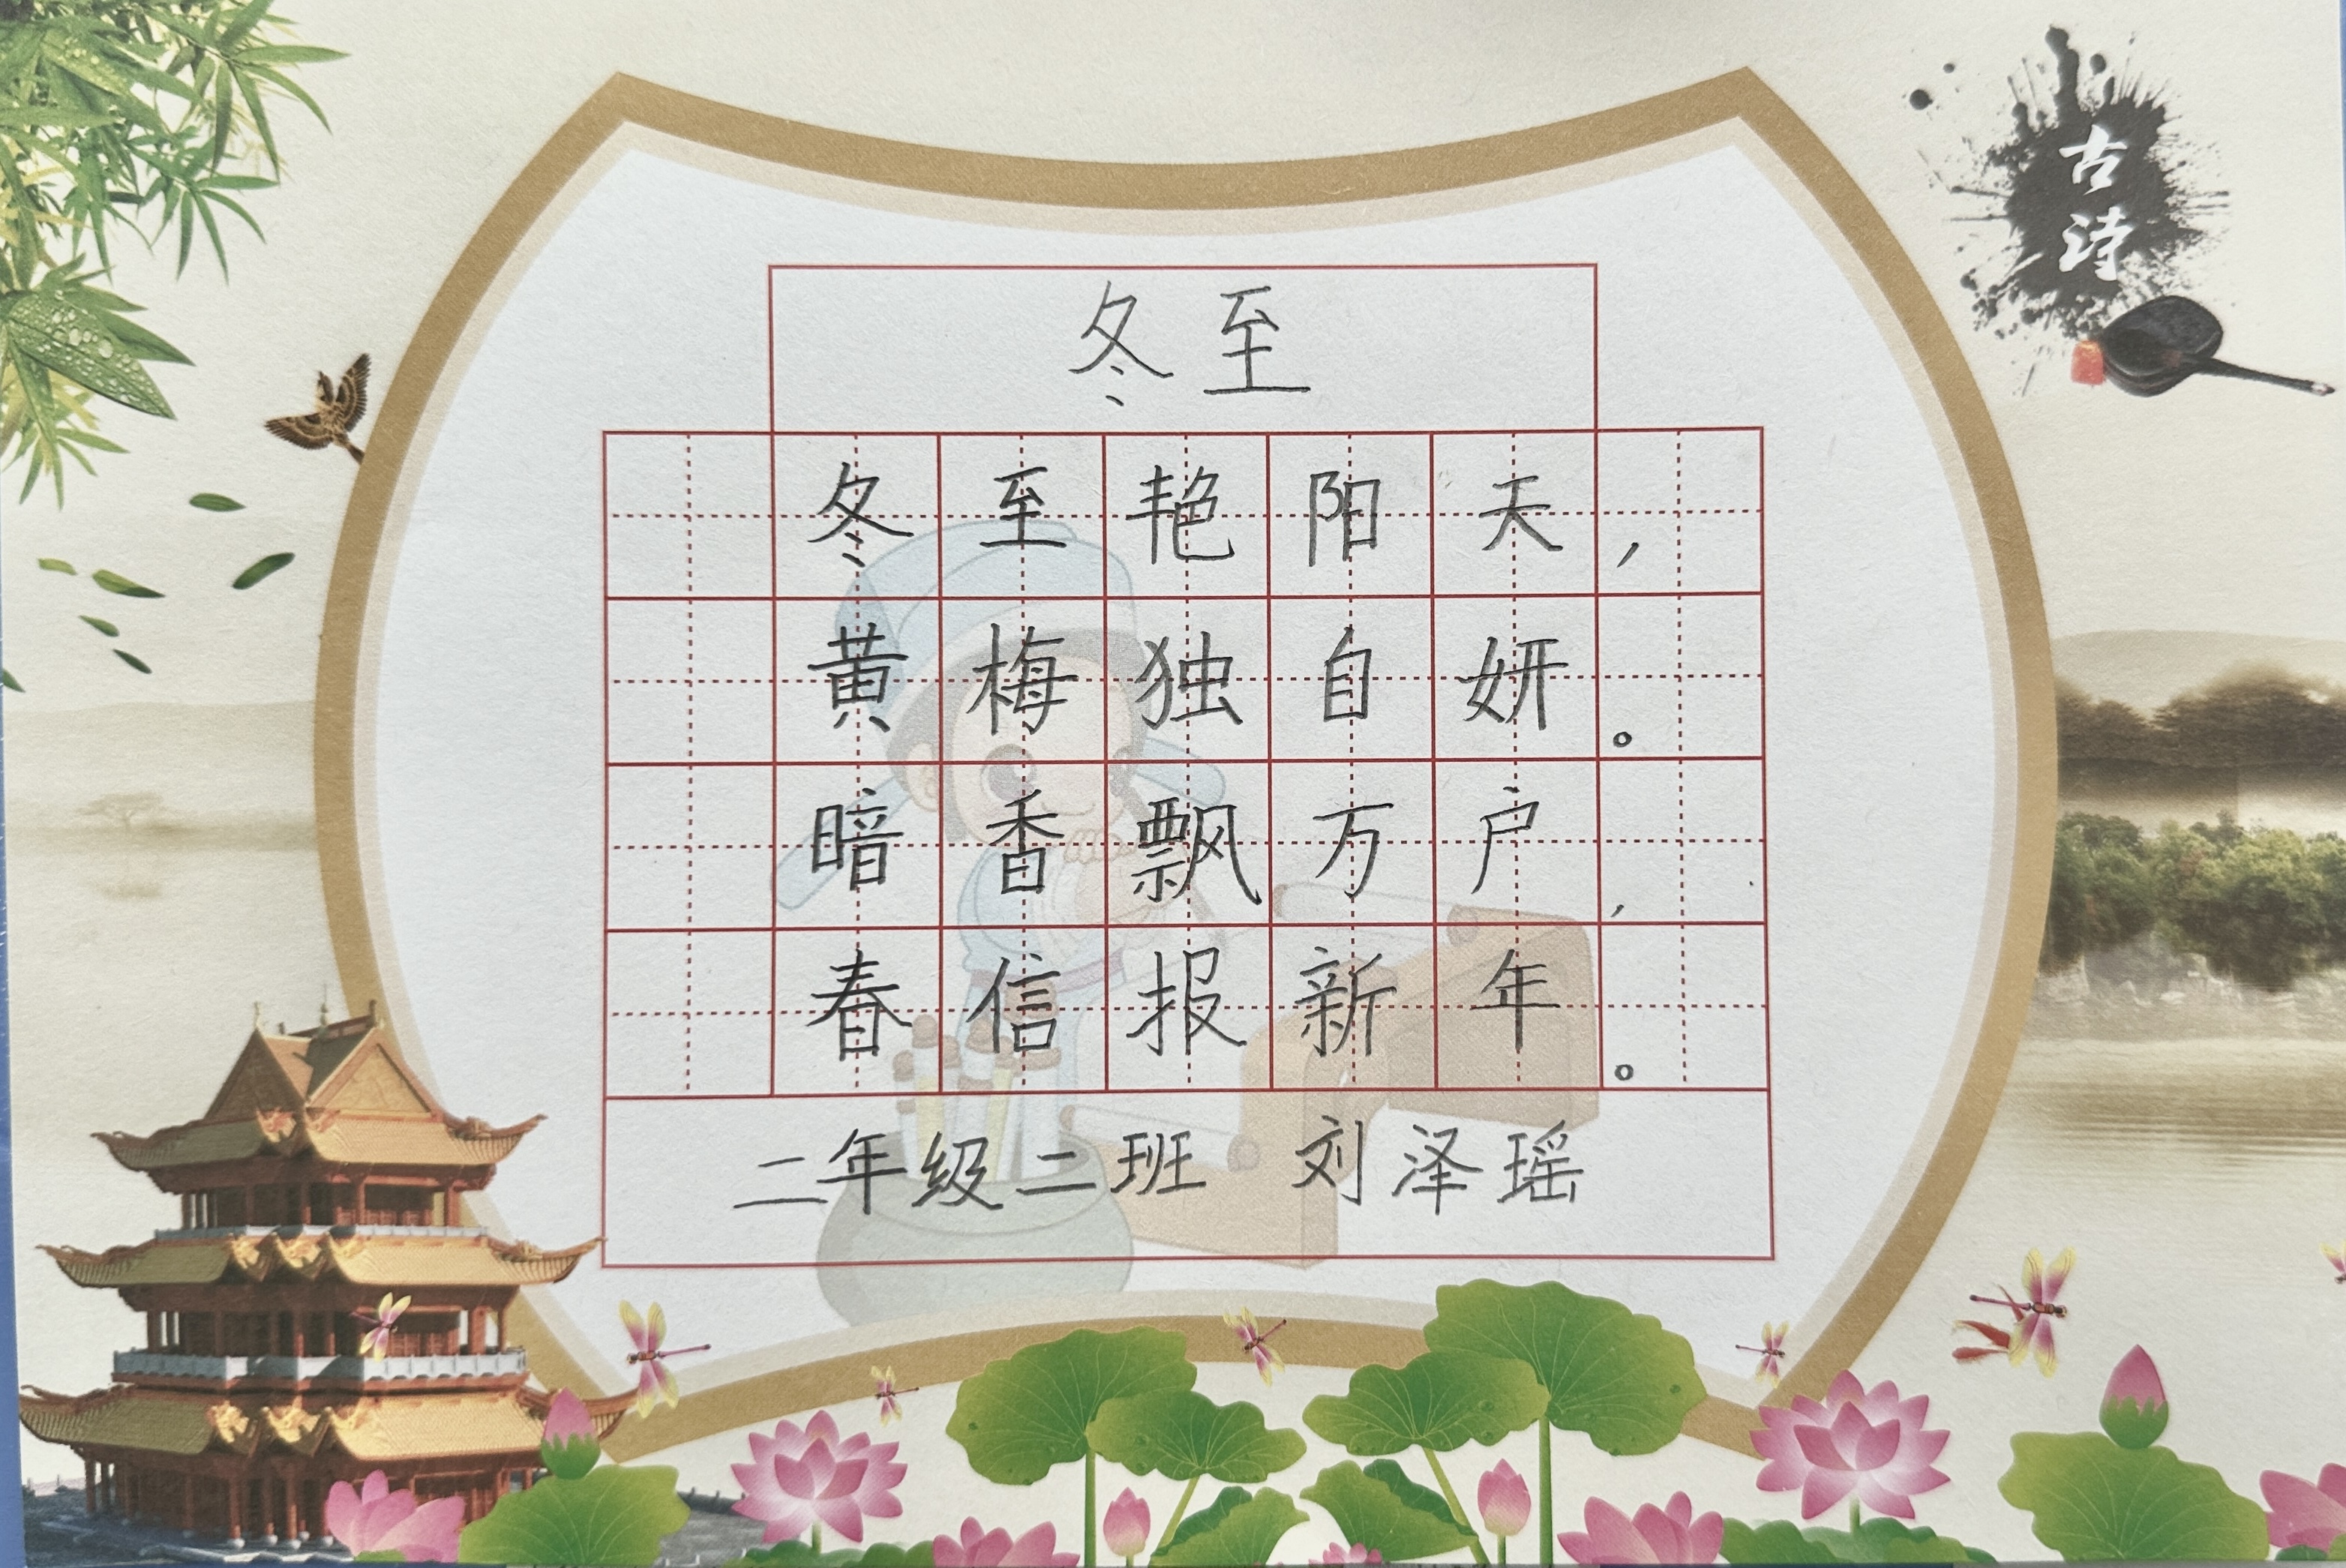 古诗
冬至
冬至艳阳天，
黄梅独自妍。
暗香飘万户，
春信报新年。
二年级二班 刘泽瑶